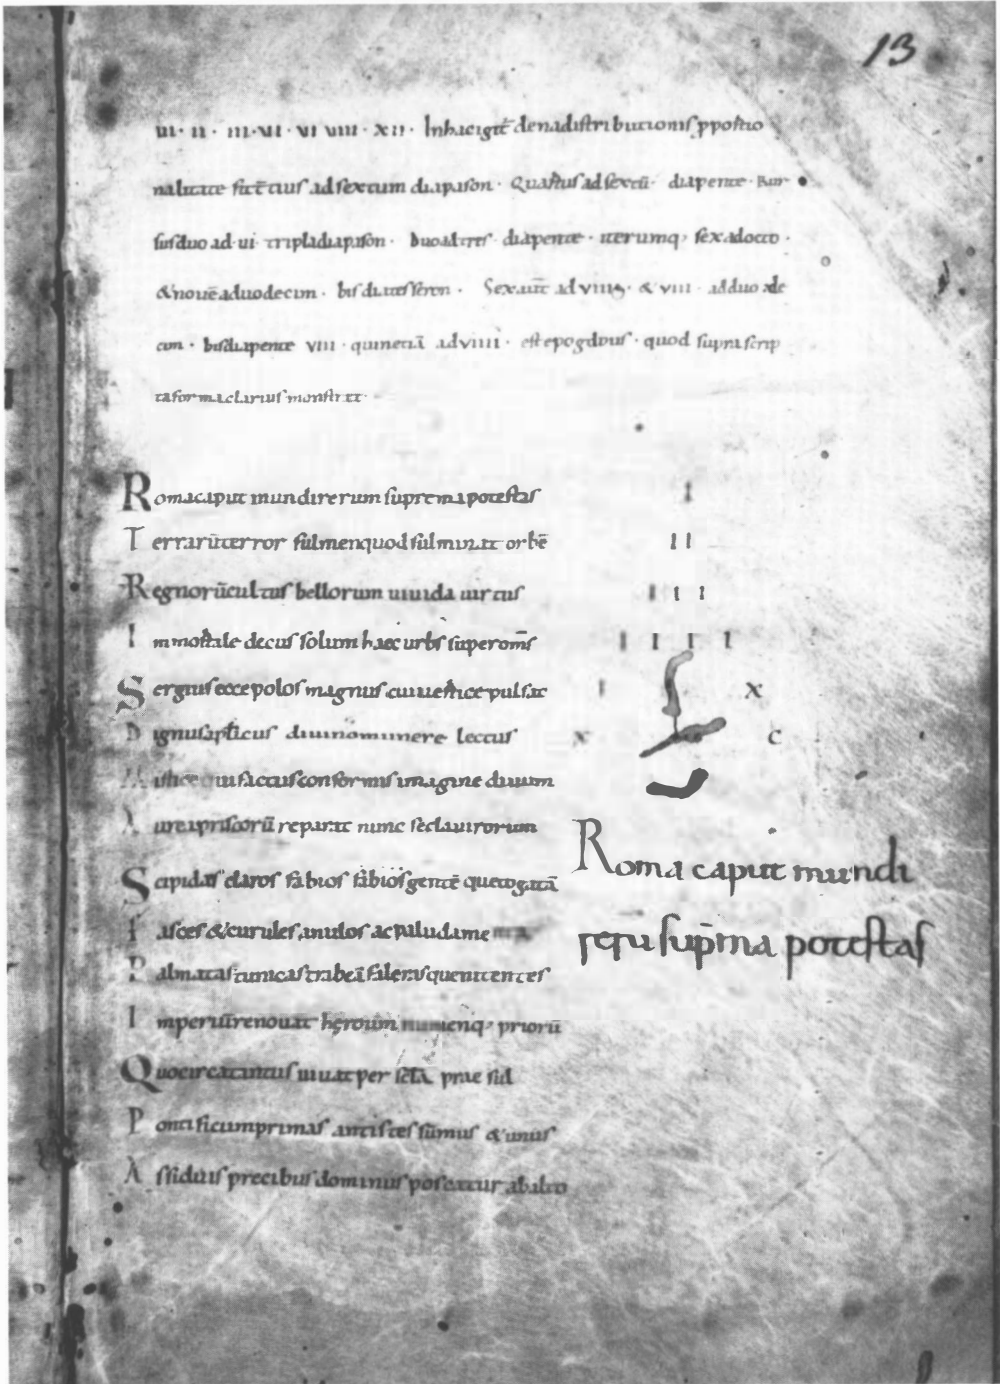 13
III · II · III · VI · VI VIIII · XII · In hac igit̄ denadistributionis ppositio
nalitate sic ē eius ad sextum diapason · Quartus ad sextū diapente · Rur
sus duo ad · vi · tripla diapason · Duo ad tres diapente · iterumq; sex ad octo ·
& nouē ad uodecim · bis diatesseron · Sex aut̄ ad viiii · & viii · ad duode
cim · bis diapente viii · qui n etiā ad viiii · est epogdous · quod supra scrip
ta forma clarius monstrat ·
Roma caput mundi rerum suprema potestas
Terrarū terror fulmen quod fulminat orbē
Regnorū cultus bellorum uiuida uirtus
Immortale decus solum haec urbs super om̄s
Sergius ecce polos magnus cui uertice pulsat
Dignus aptl̄icus diuino munere lectus
qui factus conformis imagine diuum
Aurea priscorū reparat nunc secla uirorum
Scipidas claros fabios fabios gentē que togatā
Fasces & curules anulos ac paludame
Palmatas tunicas trabeā faleras que nitentes
Imperiū renouat heroum numenq; priorū
Quocirca cunctus iuuat per sc̄l̄a prae sid
Pontificum primas antistes sūmus & unus
Assiduis precibus dominus poscatur ab alto
I
I I
I I I
I I I I
I X
X C
Roma caput mundi
reru sup̄ma potestas